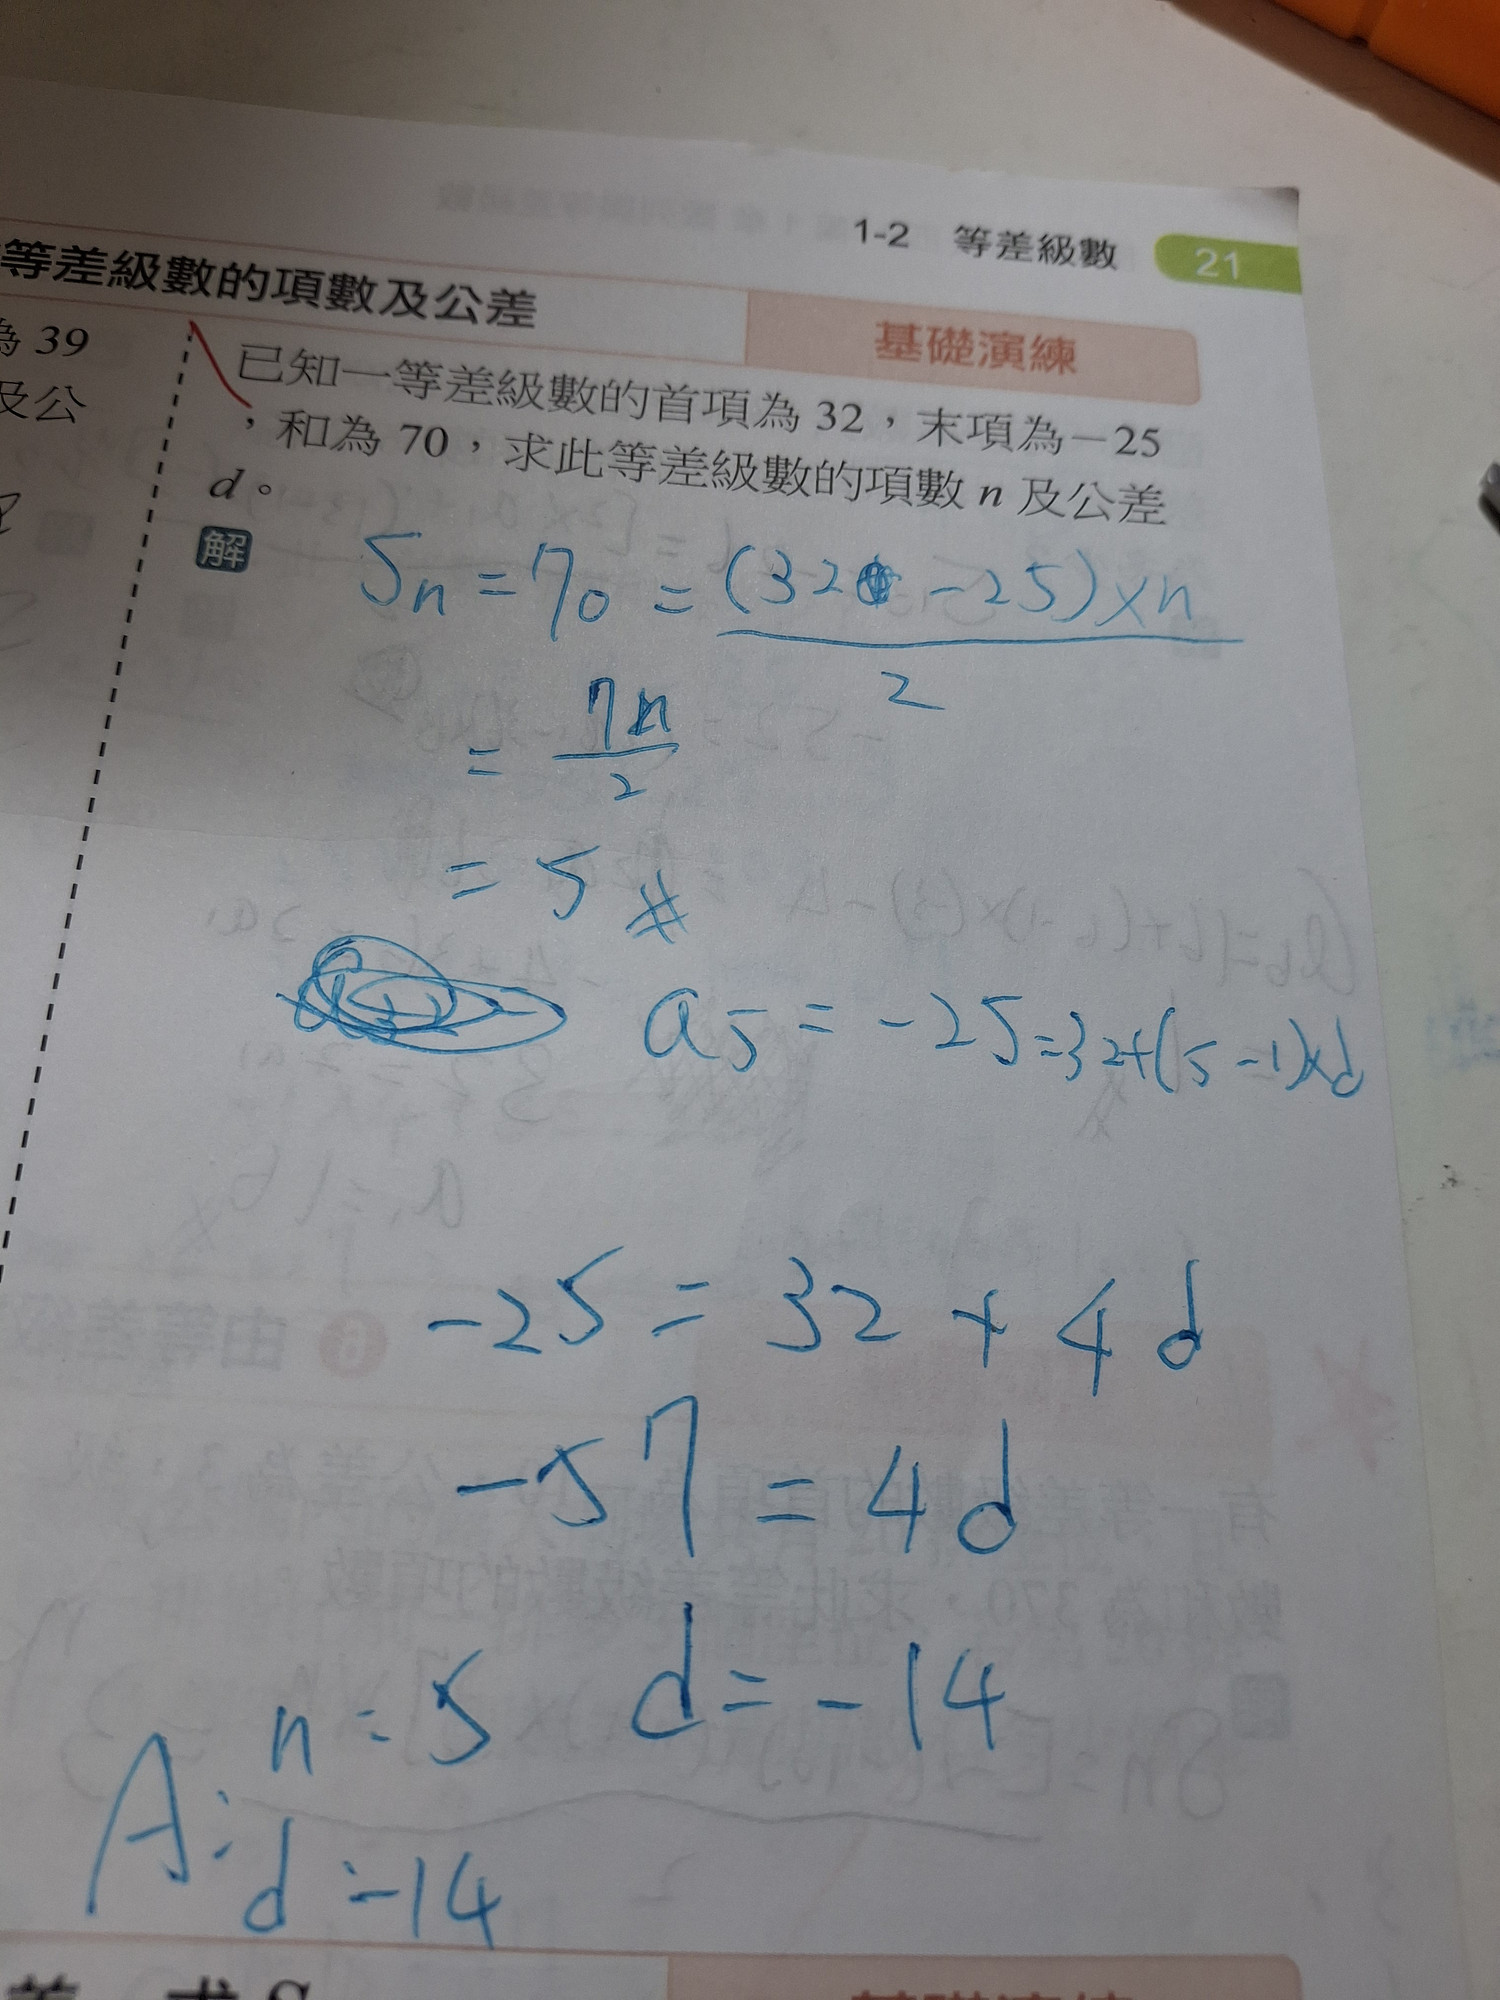 1-2 等差級數 21
等差級數的項數及公差 基礎演練
為 39
及公
已知一等差級數的首項為 32，末項為－25
，和為 70，求此等差級數的項數 n 及公差
d。
解
Sn = 70 = (32 -25)×n
2
= 7n
2
= 5 #
a5 = -25=32+(5-1)×d
-25 = 32 + 4d
-57 = 4d
n = 5 d = -14
A:
d = -14
差，求 S
基礎演練